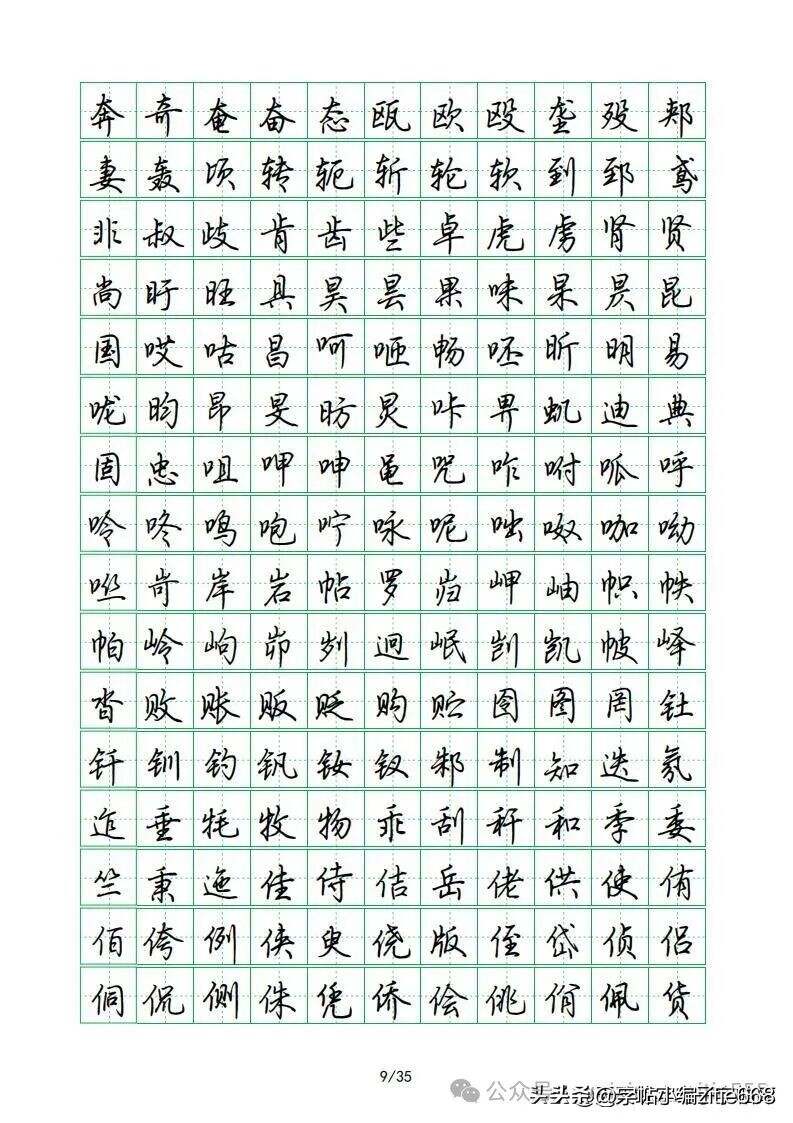 奔奇奄奋态瓯欧殴垄殁郏
妻轰顷转轭斩轮软到郅鸢
非叔歧肯齿些卓虎虏肾贤
尚盱旺具昊昙果味杲昃昆
国哎咕昌呵咂畅呸昕明易
咙昀昂旻昉炅咔畀虮迪典
固忠咀呷呻黾咒咋咐呱呼
呤咚鸣咆咛咏呢咄呶咖呦
咝岢岸岩帖罗岿岬岫帜帙
帕岭岣峁刿迥岷剀凯帔峄
沓败账贩贬购贮囹图罔钍
钎钏钓钒钕钗邾制知迭氛
迮垂牦牧物乖刮秆和季委
竺秉迤佳侍佶岳佬供使侑
佰侉例侠臾侥版侄岱侦侣
侗侃侧侏凭侨侩佻佾佩货
9/35